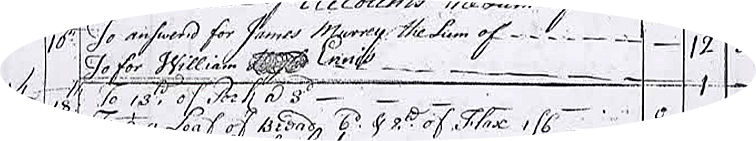 To answerd for James Murrey the Sum of 12
To for William Ennis 1
To 13 lb of Pork a 3d
a Loaf of Bread 6d & 2 lb of Flax 1/6